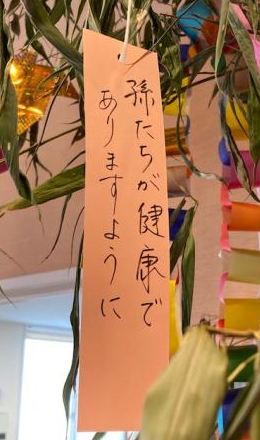 孫たちが健康で
ありますように